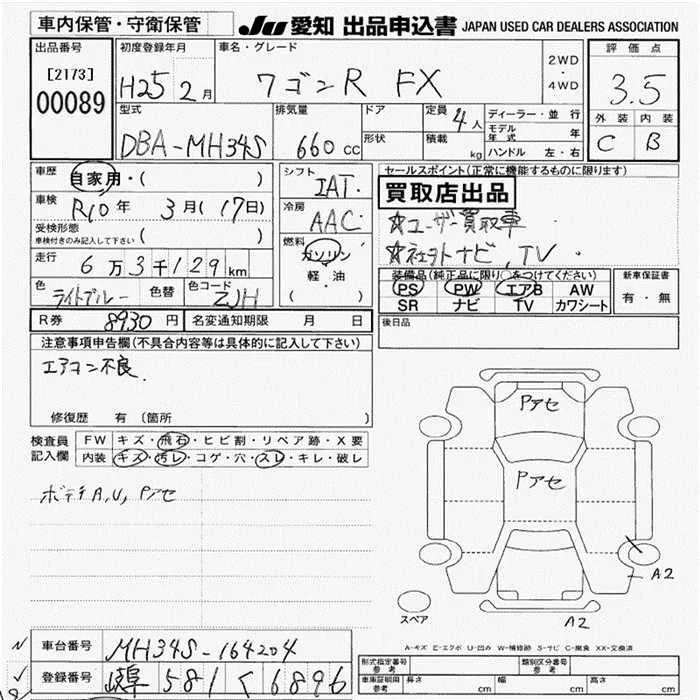 車内保管・守衛保管
JU 愛知 出品申込書 JAPAN USED CAR DEALERS ASSOCIATION
出品番号
[2173]
00089
初度登録年月
H25 2月
車名・グレード
ワゴンR FX
2WD
・
4WD
評価点
3.5
外装 内装
C B
型式
DBA-MH34S
排気量
660 cc
ドア
形状
定員 4人
積載 kg
ディーラー・並行
モデル年式 年
ハンドル 左・右
車歴 自家用・( )
車検 R10年 3月(17日)
受検形態
車検付きのみ記入して下さい ( )
走行 6万3千129km
色 ライトブルー 色替 色コード ZJH
シフト
IAT
冷房
AAC
燃料
ガソリン
・
軽・油
( )
セールスポイント(正常に機能するものに限ります)
買取店出品
☆ユーザー買取車
☆社外ナビ, TV
装備品(純正品に限り○をつけてください)
PS PW エアB AW
SR ナビ TV カワシート
新車保証書
有・無
R券 8930円 名変通知期限 月 日
後日品
注意事項申告欄(不具合内容等は具体的に記入して下さい)
エアコン不良
修復歴 有 (箇所 )
検査員
記入欄
FW キズ・飛石・ヒビ割・リペア跡・X要
内装 キズ・汚レ・コゲ・穴・スレ・キレ・破レ
ボディA,U, Pアセ
Pアセ
Pアセ
A2
スペア
A2
A-キズ E-エクボ U-凹み W-補修跡 S-サビ C-腐食 XX-交換済
車台番号 MH34S-164204
登録番号 岐阜 581 く 6896
形式指定番号
参考
類別区分番号
参考
車庫証明用
参考
長さ cm 幅 cm 高さ cm